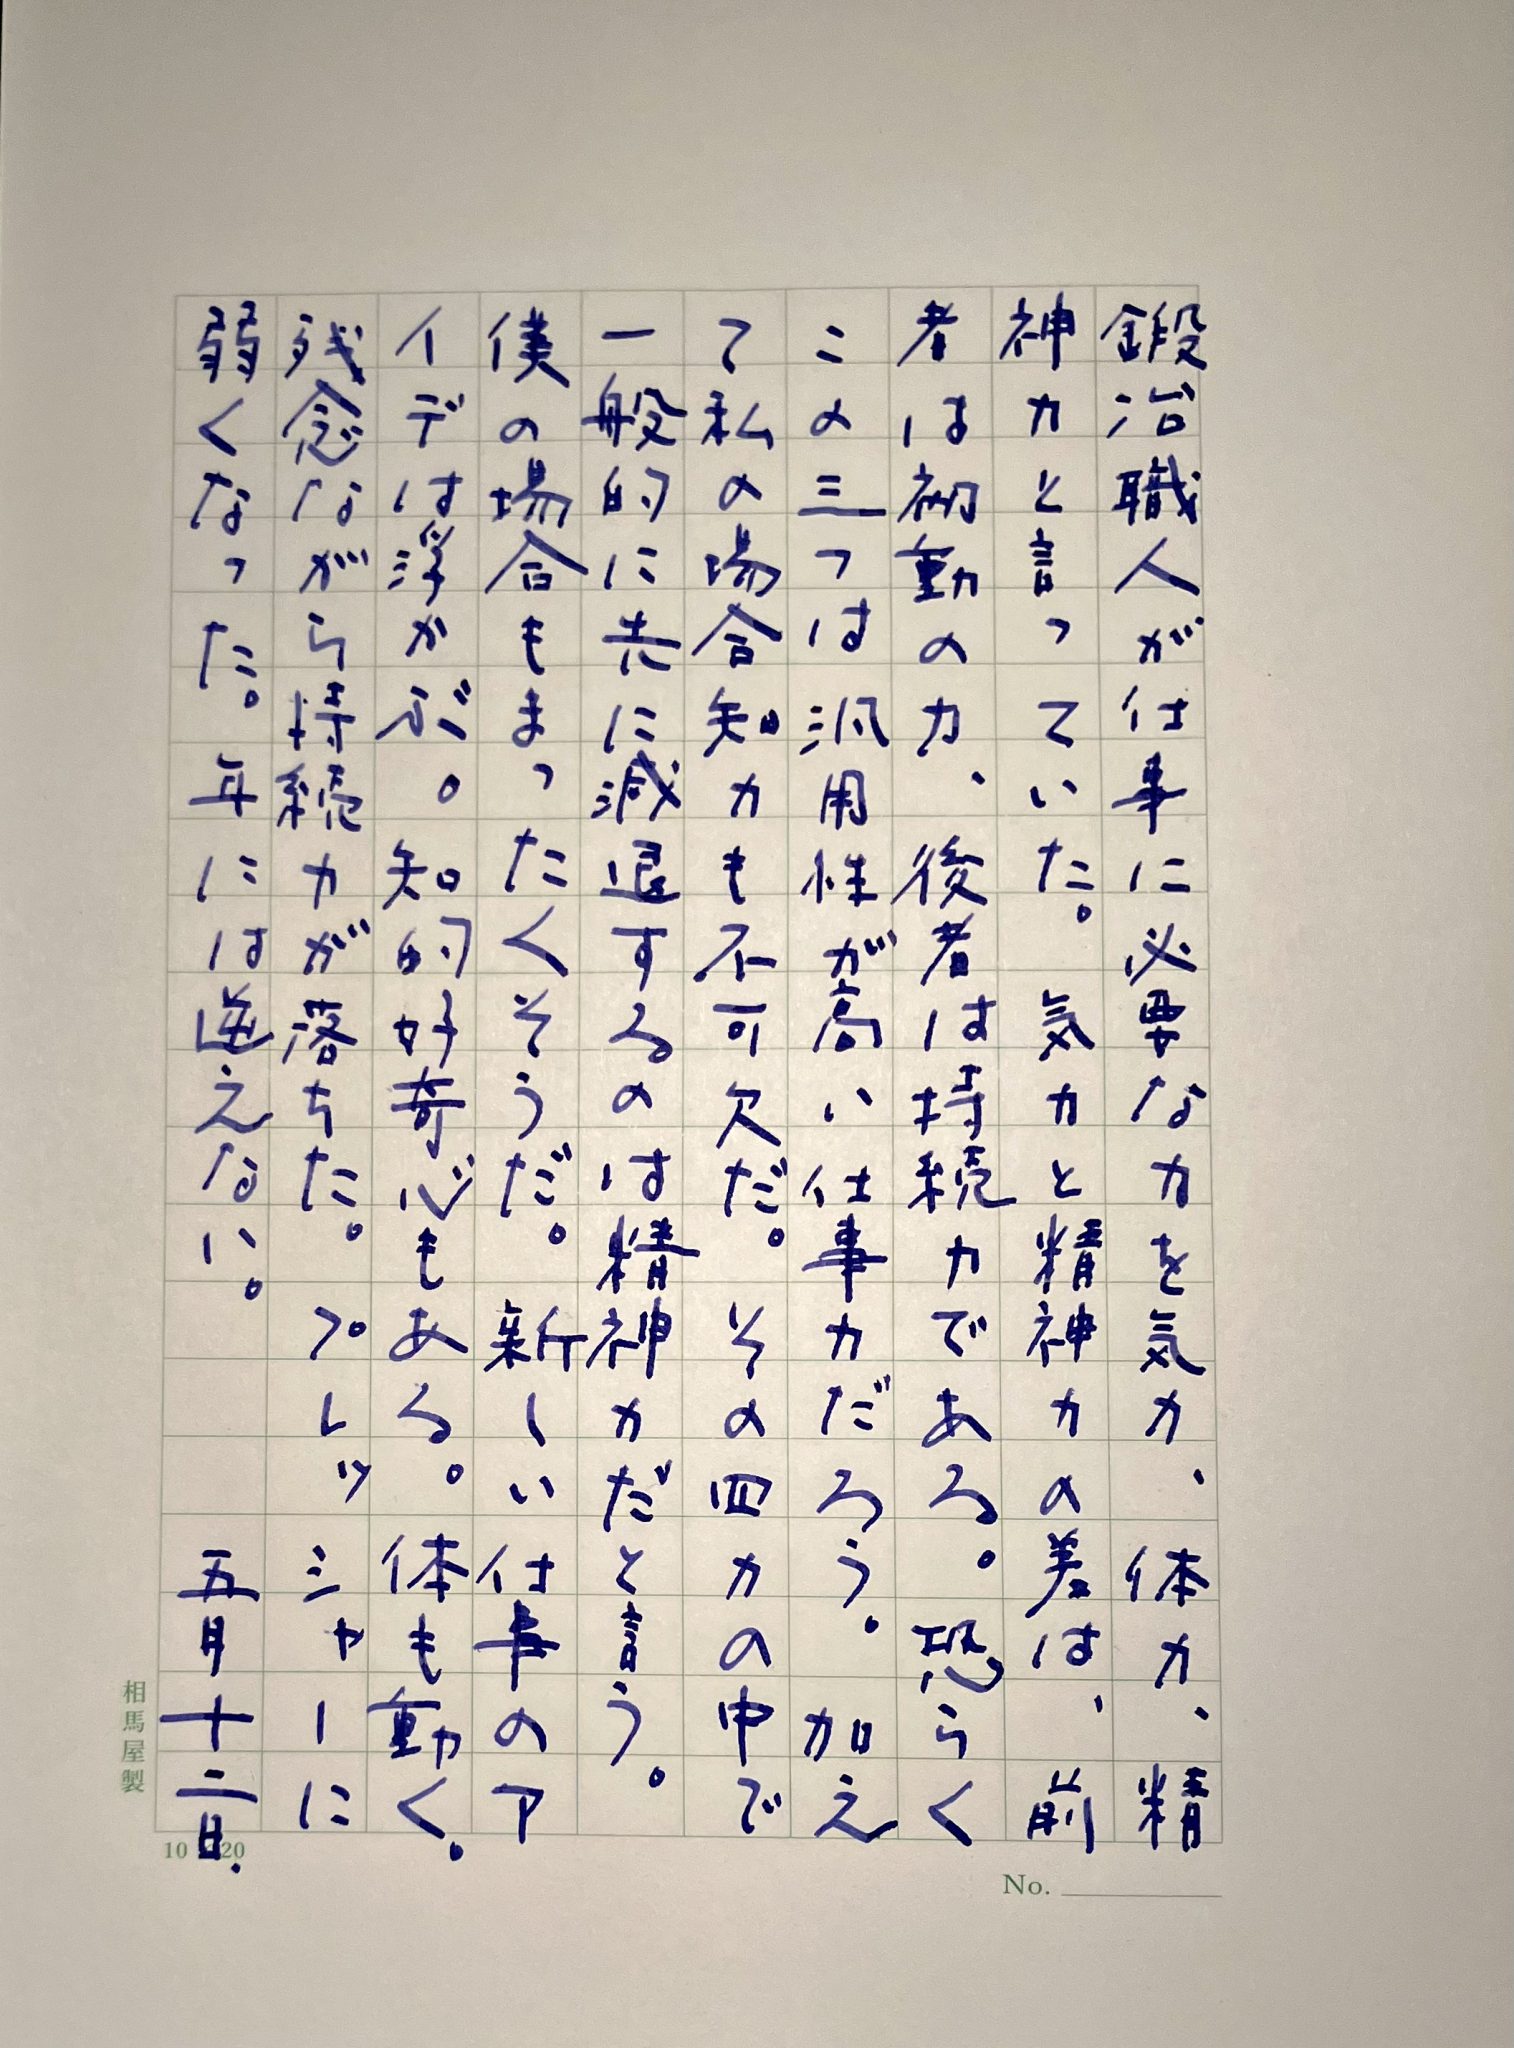 鍛冶職人が仕事に必要な力を気力、体力、精
神力と言っていた。気力と精神力の差は、前
者は初動の力、後者は持続力である。恐らく
この三つは汎用性が高い仕事力だろう。加え
て私の場合知力も不可欠だ。その四力の中で
一般的に先に減退するのは精神力だと言う。
僕の場合もまったくそうだ。新しい仕事のア
イデは浮かぶ。知的好奇心もある。体も動く。
残念ながら持続力が落ちた。プレッシャーに
弱くなった。年には逆えない。五月十二日.
相馬屋製
10 20
No.